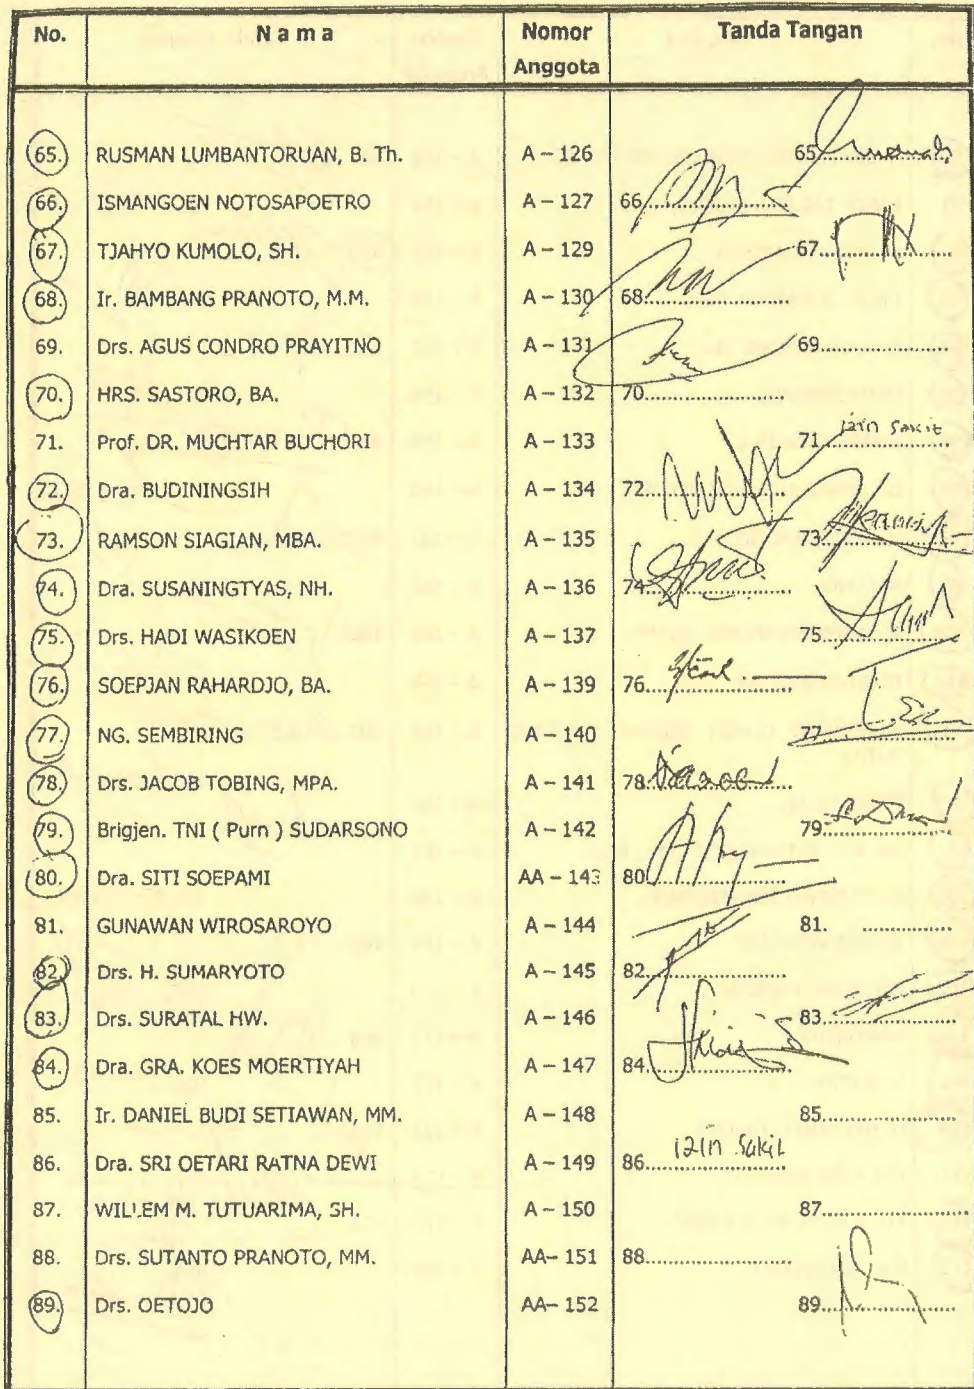 No. Nama Nomor Anggota Tanda Tangan
65. RUSMAN LUMBANTORUAN, B. Th. A – 126 65
66. ISMANGOEN NOTOSAPOETRO A – 127 66
67. TJAHYO KUMOLO, SH. A – 129 67
68. Ir. BAMBANG PRANOTO, M.M. A – 130 68
69. Drs. AGUS CONDRO PRAYITNO A – 131 69
70. HRS. SASTORO, BA. A – 132 70
71. Prof. DR. MUCHTAR BUCHORI A – 133 71 izin sakit
72. Dra. BUDININGSIH A – 134 72
73. RAMSON SIAGIAN, MBA. A – 135 73
74. Dra. SUSANINGTYAS, NH. A – 136 74
75. Drs. HADI WASIKOEN A – 137 75
76. SOEPJAN RAHARDJO, BA. A – 139 76
77. NG. SEMBIRING A – 140 77
78. Drs. JACOB TOBING, MPA. A – 141 78
79. Brigjen. TNI ( Purn ) SUDARSONO A – 142 79
80. Dra. SITI SOEPAMI AA – 143 80
81. GUNAWAN WIROSAROYO A – 144 81.
82. Drs. H. SUMARYOTO A – 145 82
83. Drs. SURATAL HW. A – 146 83
84. Dra. GRA. KOES MOERTIYAH A – 147 84
85. Ir. DANIEL BUDI SETIAWAN, MM. A – 148 85
86. Dra. SRI OETARI RATNA DEWI A – 149 86 izin sakit
87. WILLEM M. TUTUARIMA, SH. A – 150 87
88. Drs. SUTANTO PRANOTO, MM. AA– 151 88
89. Drs. OETOJO AA– 152 89